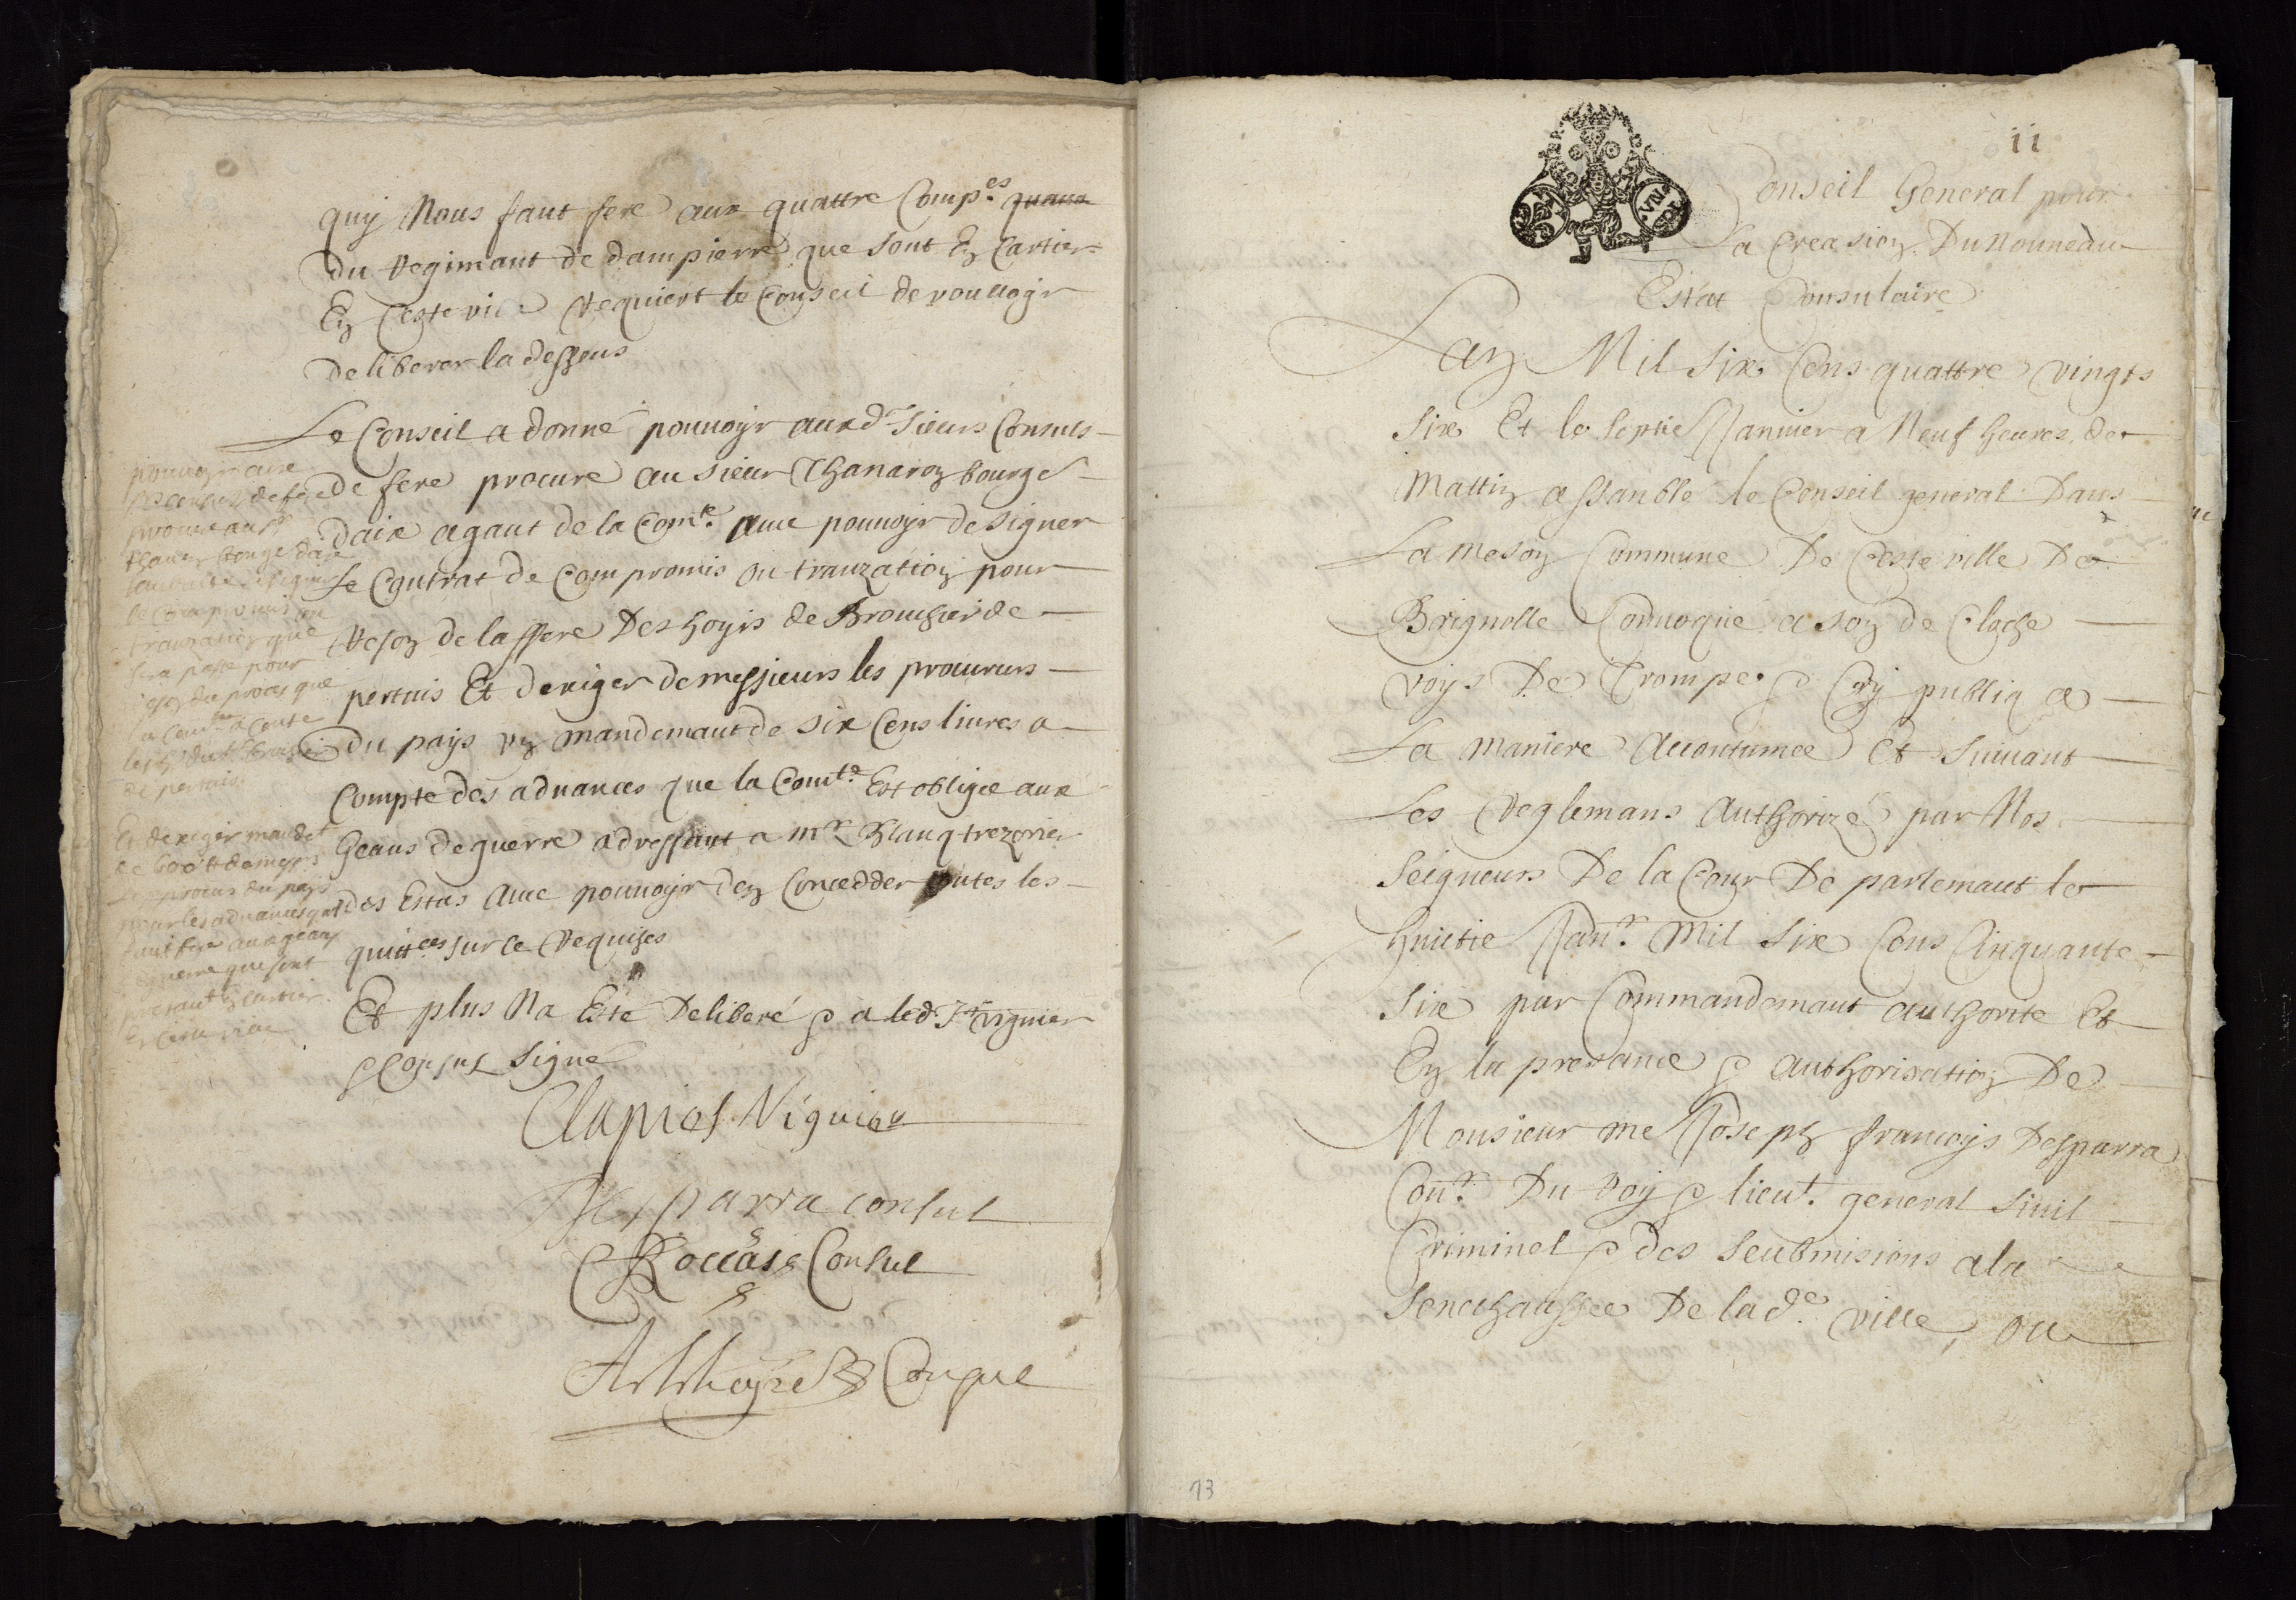 quy Nous faut fere aux quattre Comp.es quaua
du Regimant de dampierre que sont En Cartier
En Ceste ville Requiert le Conseil de voulloyr
deliberer la dessus
Le Conseil a donné pouuoyr auxd. sieurs Consuls
de fere procure au sieur Thanaron bourgs
daix agant de la Comté. auec pouuoyr de signer
Le Contrat de Compromis ou tranzation pour
Reson de laffere Des hoyrs de Brouchier de
pertuis Et dexiger de messieurs les procureurs
du pays un mandemant de six Cens liures a
Compte des aduances que la Comté. Est obligée aux
Geans de guerre adressant a mr. Blanq trezorier
des Estas auec pouuoyr den Concedder toutes les
quitt.ces sur ce Requizes
Et plus Na Esté Deliberé & a led. Sr. viguier
& Consuls Signé
pouuoyr aux
Srs consuls de fere
procure au sr
bourgs daix
le Compromis ou
tranzation que
sera passé pour
reson du proces que
la Comté a contre
de pertuis
Et dexiger mandat
de 600 lt de messrs
les procurs du pays
pour les aduances quil
faut fere aux geans
de guerre que sont
presant En Cartier
En Ceste ville
Clapiers Viguier
Desparra consul
Roccas Consul
Consul
ii
Conseil General pour
La Creasion Du Nouueau
Estat Consulaire
Lan Mil six Cens quattre vingts
six Et le septie Januier a Neuf heures de
Mattin assanblé le Conseil general Dans
La meson Commune De Ceste ville De
Brignolle Conuoqué a son de Cloche
voys De Trompe & Cry publiq a
La maniere Accoutumee Et suiuant
Les Reglemans Authorizé par Nos
Seigneurs De la Cour De parlemant le
huictie Janr. Mil six Cens Cinquante
six par Commandemant authorité Et
En la presance & authorisation De
Monsieur me Joseph françoys Desparra
Conr. Du Roy & lieut. general siuil
Criminel & des seubmisions a la
senechaussee De lad.e ville, ou
73